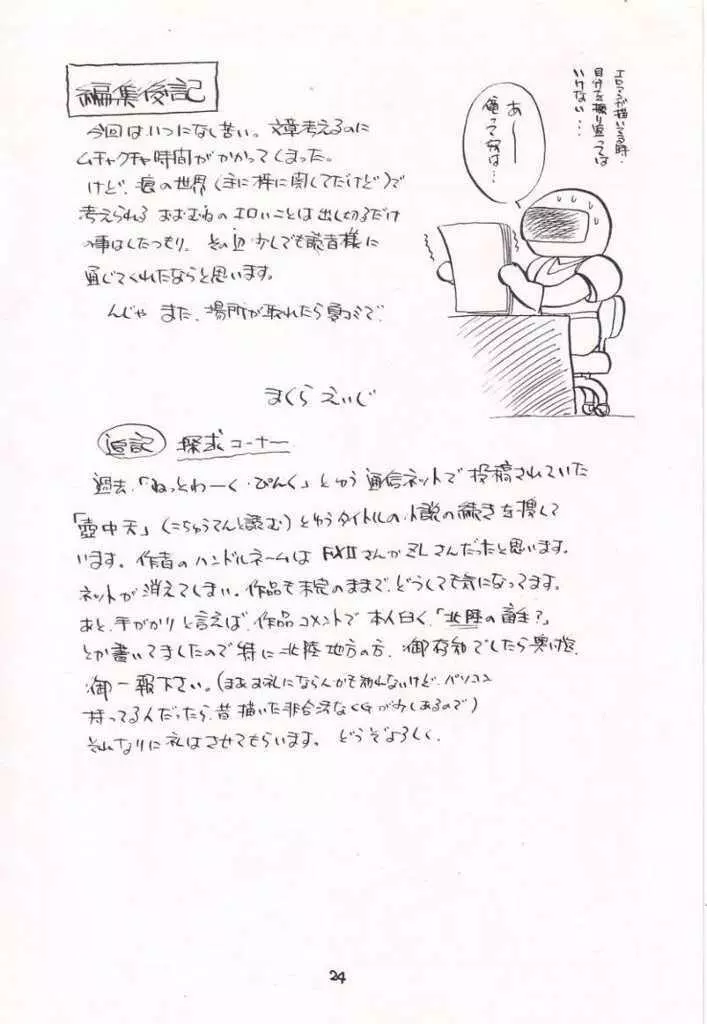 編集後記
今回はいつになし苦い。文章考えるのに
ムチャクチャ時間がかかってしまった。
けど、痕の世界(主に梓に関してだけど)で
考えられるおおむねのエロいことは出し切るだけ
の事はしたつもり。その辺少しでも読者様に
通じてくれたならと思います。
んじゃ また、場所が取れたら夏コミで
まくら えいじ
エロマンガ描いてる時、
自分を振り返っては
いけない…
あ〜
俺って奴は…
追記 探求コーナー
過去、「ねっとわーく・ぴんく」とゆう通信ネットで投稿されていた
「壺中天」(こちゅうてんと読む)とゆうタイトルの小説の続きを捜して
います。作者のハンドルネームは FXIIさんかMLさんだったと思います。
ネットが消えてしまい、作品も未完のままで、どうしても気になってます。
あと、手がかりと言えば、作品コメントで本人曰く、「北陸の畜生?」
とか書いてましたので特に北陸地方の方、御存知でしたら奥付
御一報下さい。(まあお礼にならんかも知れないけど、パソコン
持ってるんだったら、昔描いた非合法なCGが少しあるので)
それなりに礼はさせてもらいます。どうぞよろしく。
24